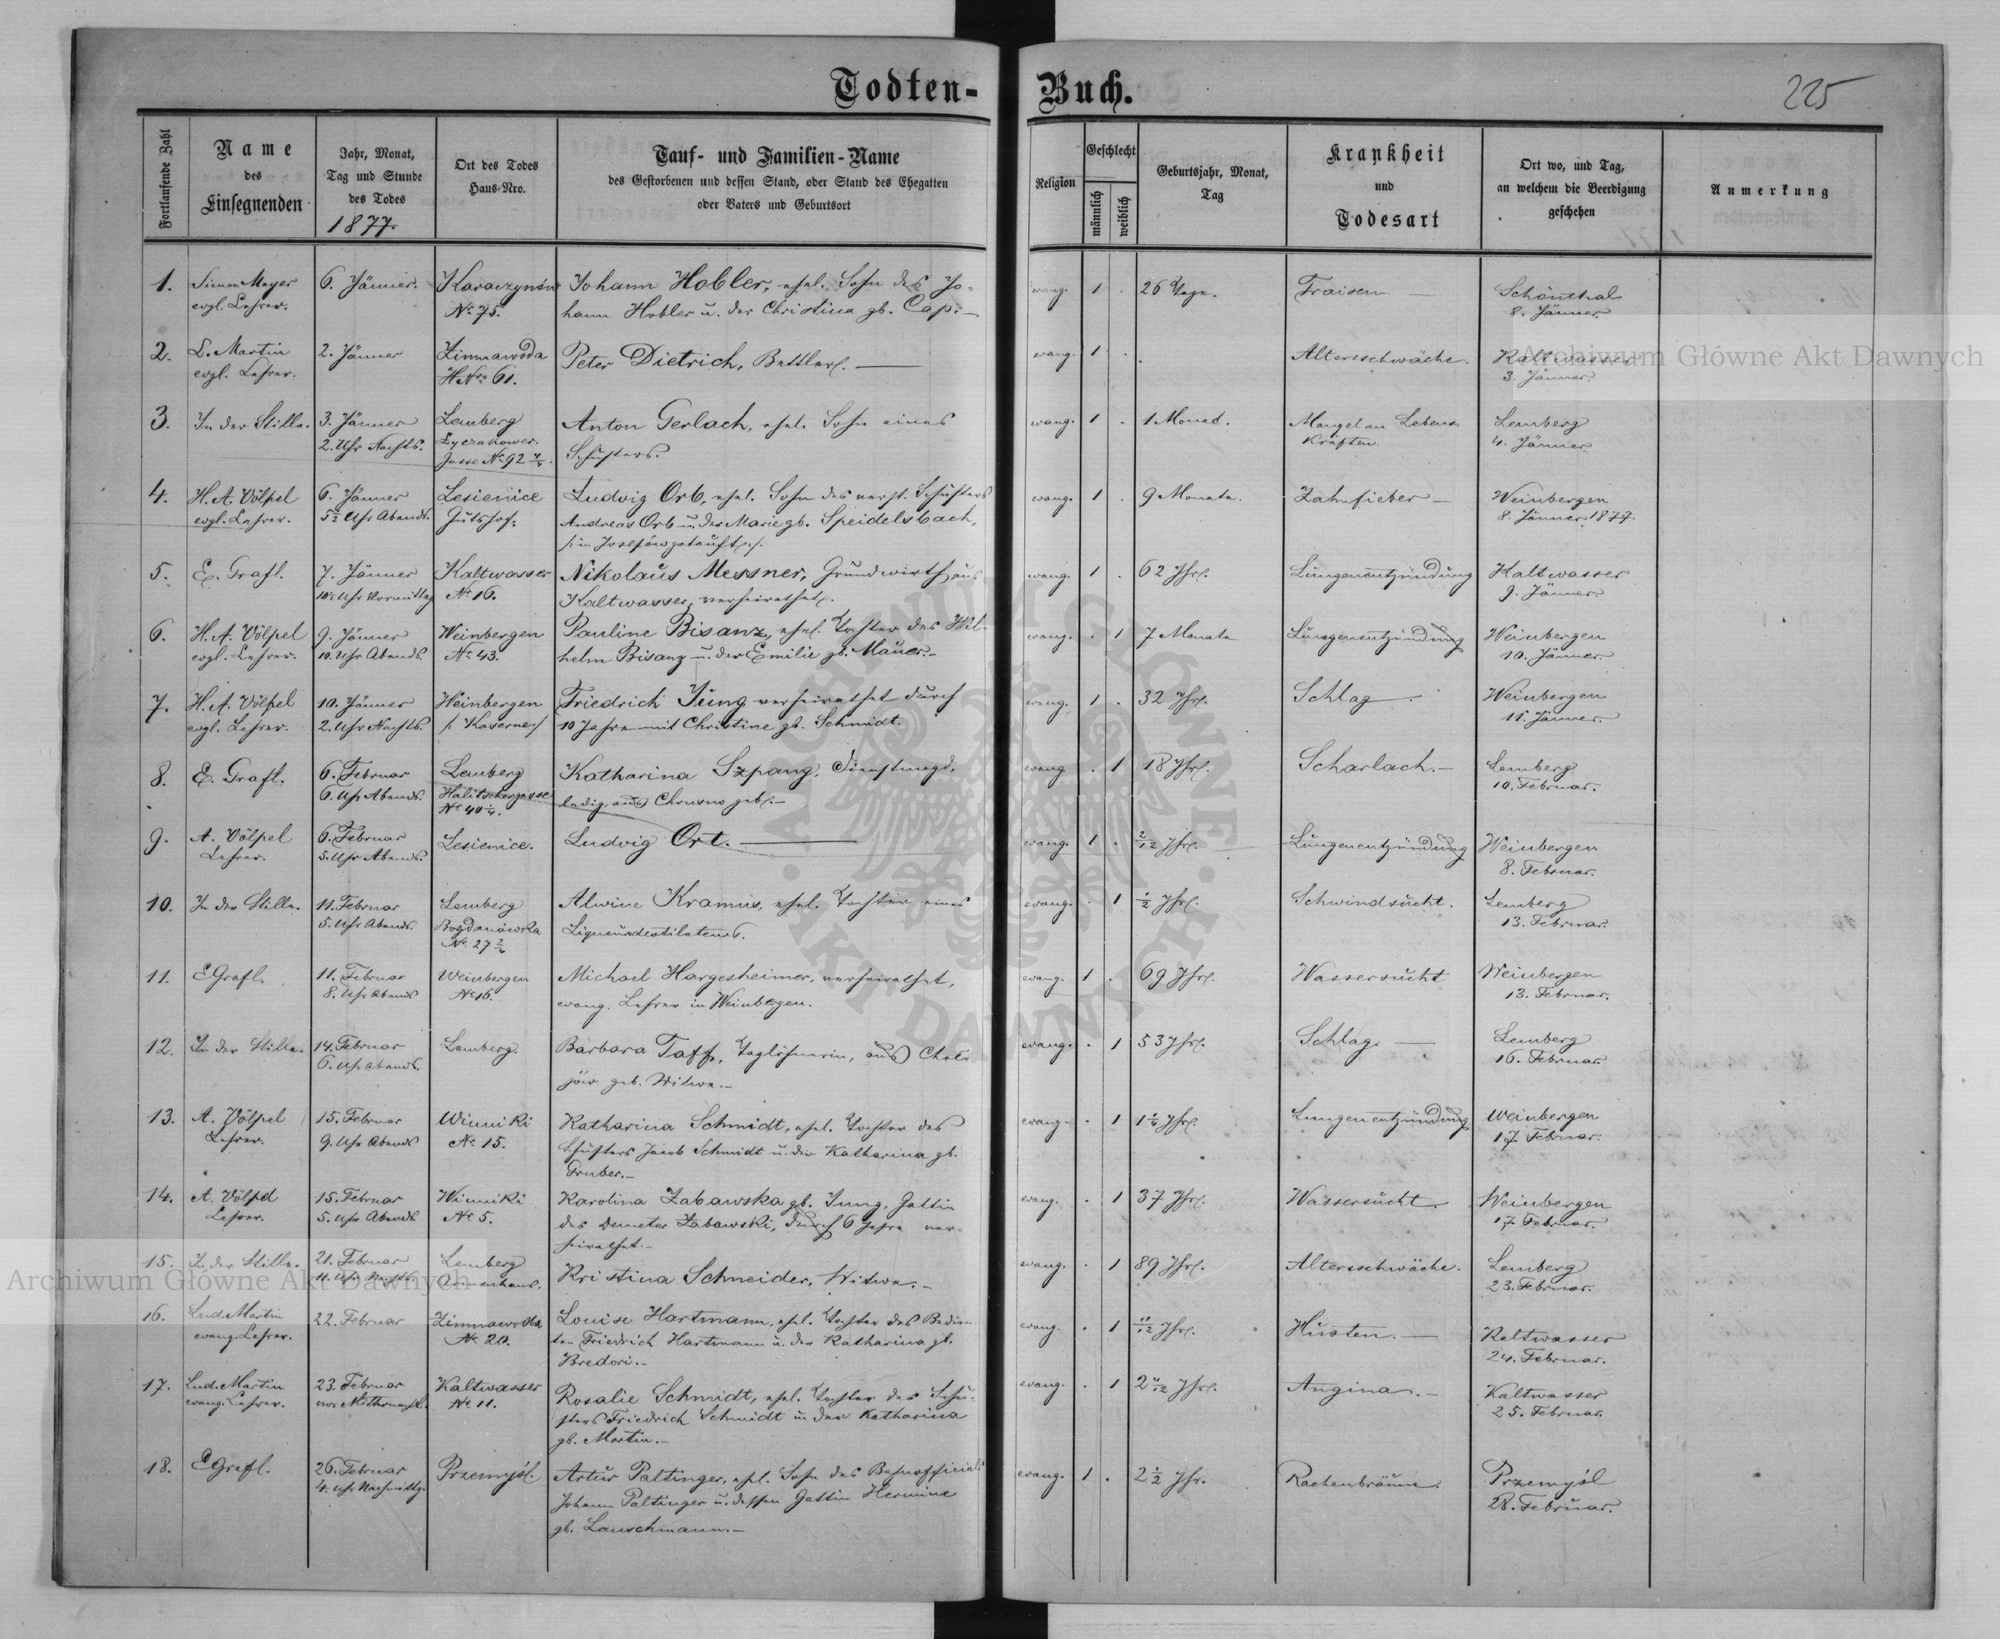 Todten-Buch.
225
Fortlaufende Zahl
Name des Einsegnenden
Jahr, Monat, Tag und Stunde des Todes
1877.
Ort des Todes Haus-Nro.
Tauf- und Familien-Name
des Gestorbenen und dessen Stand, oder Stand des Ehegatten
oder Vaters und Geburtsort
Religion
Geschlecht
männlich
weiblich
Geburtsjahr, Monat, Tag
Krankheit und Todesart
Ort wo, und Tag, an welchem die Beerdigung geschehen
Anmerkung
1. Simon Mayer 6. Jänner. Karaczynów Johann Hobler, ehel. Sohn des Jo- evang. 1 . 26 Tage. Fraisen — Schönthal
evgl. Lehrer. No 75. hann Hobler u. der Christina gb. Cap.— 8. Jänner.
2. L. Martin 2. Jänner Zimnawoda Peter Dietrich, Bettler. — evang. 1 . . Altersschwäche. Kaltwasser
evgl. Lehrer. HNro 61. 3. Jänner.
3. In der Stille. 3. Jänner Lemberg Anton Gerlach, ehel. Sohn eines evang. 1 . 1 Monat. Mangel an Lebens- Lemberg
2. Uhr Nachts. Lyczakower- Schusters. kräften. 4. Jänner
Gasse No 92 4/4.
4. H. A. Völpel 6. Jänner Lesienice Ludwig Orb, ehel. Sohn des verst. Schusters evang. 1 . 9 Monate. Zahnfieber — Weinbergen
evgl. Lehrer. 5½ Uhr Abends. Gutshof. Andreas Orb u. der Marie gb. Speidelsbach, 8. Jänner 1877.
/: in Josefów getauft :/.
5. E. Grafl. 7. Jänner Kaltwasser Nikolaus Messner, Grundwirth aus evang. 1 . 62 Jhr. Lungenentzündung Kaltwasser
10½ Uhr Vormittag No 16. Kaltwasser, verheirathet. 9. Jänner.
6. H. A. Völpel 9. Jänner Weinbergen Pauline Bisanz, ehel. Tochter des Wil- evang. . 1 7 Monate Lungenentzündung Weinbergen
evgl. Lehrer. 10. Uhr Abends. No 43. helm Bisanz u. der Emilie gb. Mauer.— 10. Jänner.
7. H. A. Völpel 10. Jänner Weinbergen Friedrich Jung verheirathet durch evang. 1 . 32 Jhr. Schlag — Weinbergen
evgl. Lehrer. 2. Uhr Nachts. /: Kaserne :/ 10 Jahre mit Christine gb. Schmidt. 11. Jänner.
8. E. Grafl. 6. Februar Lemberg Katharina Szpang, Dienstmagd, evang. . 1 18 Jhr. Scharlach.— Lemberg
6. Uhr Abends. Halitschergasse ledig, aus Chrusno geb.— 10. Februar.
No 40 1/4.
9. A. Völpel 6. Februar Lesienice. Ludwig Ort. — evang. 1 . 2/12 Jhr. Lungenentzündung Weinbergen
Lehrer. 5. Uhr Abends. 8. Februar.
10. In der Stille. 11. Februar Lemberg Alwine Kramus, ehel. Tochter eines evang. . 1 ½ Jhr. Schwindsucht. Lemberg
5. Uhr Abends. Bogdanówka Liqueurdestilateurs. 13. Februar.
No 27 2/4
11. E Grafl. 11. Februar Weinbergen Michael Hargesheimer, verheirathet, evang. 1 . 69 Jhr. Wassersucht Weinbergen
8. Uhr Abends No 16. evang. Lehrer in Weinbergen. 13. Februar.
12. In der Stille. 14. Februar Lemberg. Barbara Taff, Taglöhnerin, aus Cholo- evang. . 1 53 Jhr. Schlag. — Lemberg
6. Uhr Abends. jów geb. Witwe.— 16. Februar.
13. A. Völpel 15. Februar Winniki Katharina Schmidt, ehel. Tochter des evang. . 1 Jhr. Lungenentzündung Weinbergen
Lehrer. 9. Uhr Abends No 15. Schusters Jacob Schmidt u. der Katharina gb. 17. Februar.
Gruber.—
14. A. Völpel 15. Februar Winniki Karolina Zabawska gb. Jung, Gattin evang. . 1 37 Jhr. Wassersucht. Weinbergen
Lehrer. 5. Uhr Abends No 5. des Demeter Zabawski, durch 6 Jahre ver- 17. Februar.
heirathet.—
15. In der Stille. 21. Februar Lemberg Kristina Schneider, Witwe.— evang. . 1 89 Jhr. Altersschwäche. Lemberg
11. Uhr Nachts Armenhaus. 23. Februar.
16. Lud. Martin 22. Februar Zimnawoda Louise Hartmann, ehel. Tochter des Bedien- evang. . 1 11/12 Jhr. Husten. — Kaltwasser
evang. Lehrer. No 20. ten Friedrich Hartmann u. der Katharina gb. 24. Februar.
Bredori.—
17. Lud. Martin 23. Februar Kaltwasser Rosalie Schmidt, ehel. Tochter des Schu- evang. . 1 Jhr. Angina.— Kaltwasser
evang. Lehrer. vor Mitternacht. No 11. sters Friedrich Schmidt u. der Katharina 25. Februar.
gb. Martin.—
18. E Grafl. 26. Februar Przemyśl. Artur Paltinger, ehel. Sohn des Bahnofficials evang. 1 . 2½ Jhr. Rachenbräune. Przemyśl
4. Uhr Nachmittg. Johann Paltinger u. dessen Gattin Hermine 28. Februar.
gb. Lauschmann.—
Archiwum Główne Akt Dawnych
Archiwum Główne Akt Dawnych
ARCHIWUM GŁÓWNE AKT DAWNYCH